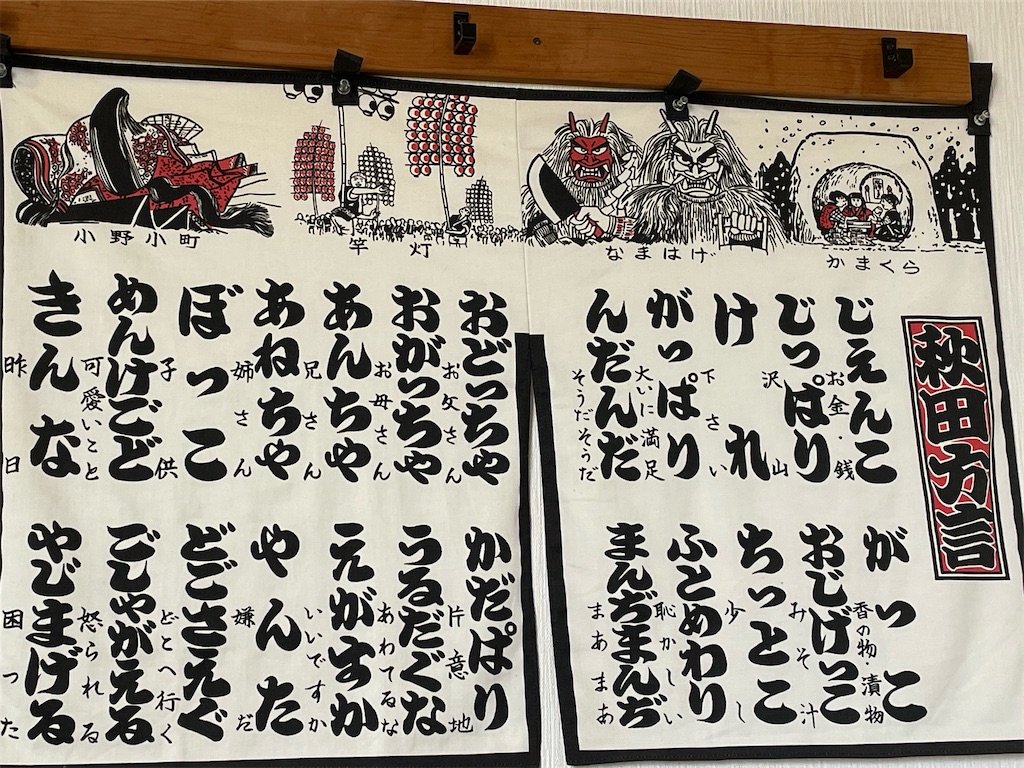 小野小町
竿灯
なまはげ
かまくら
秋田方言
じえんこ
お金・銭
じっぱり
沢山
けれ
下さい
がっぱり
大いに満足
んだんだ
そうだそうだ
おどっちゃ
お父さん
おがっちゃ
お母さん
あんちゃ
兄さん
あねちゃ
姉さん
ぼっこ
子供
めんけごど
可愛いこと
きんな
昨日
がっこ
香の物・漬物
おじげっこ
みそ汁
ちっとこ
少し
ふとめわり
恥かしい
まんぢまんぢ
まあまあ
かだぱり
片意地
うるだぐな
あわてるな
えがすか
いいですか
やんた
嫌だ
どごさえぐ
どこへ行く
ごしゃがえる
怒られる
やじまげる
困った